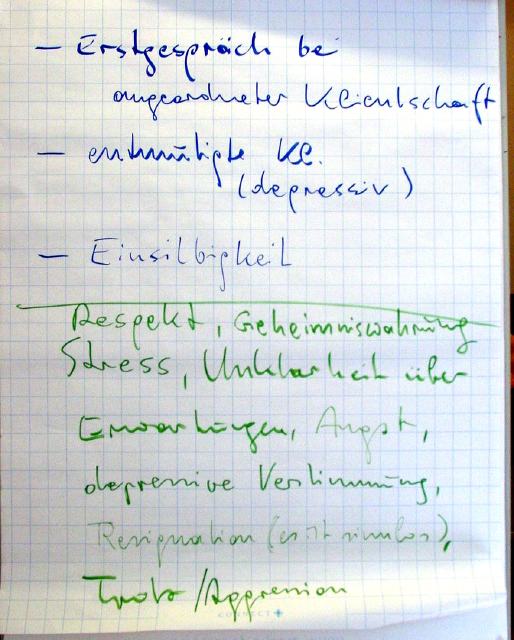 – Erstgespräch bei
angeordneter Klientschaft
– entmutigte Kl.
(depressiv)
– Einsilbigkeit
Respekt, Geheimniswahrung
Stress, Unklarheit über
Erwartungen, Angst,
depressive Verstimmung,
Resignation (es ist sinnlos),
Trotz/Aggression